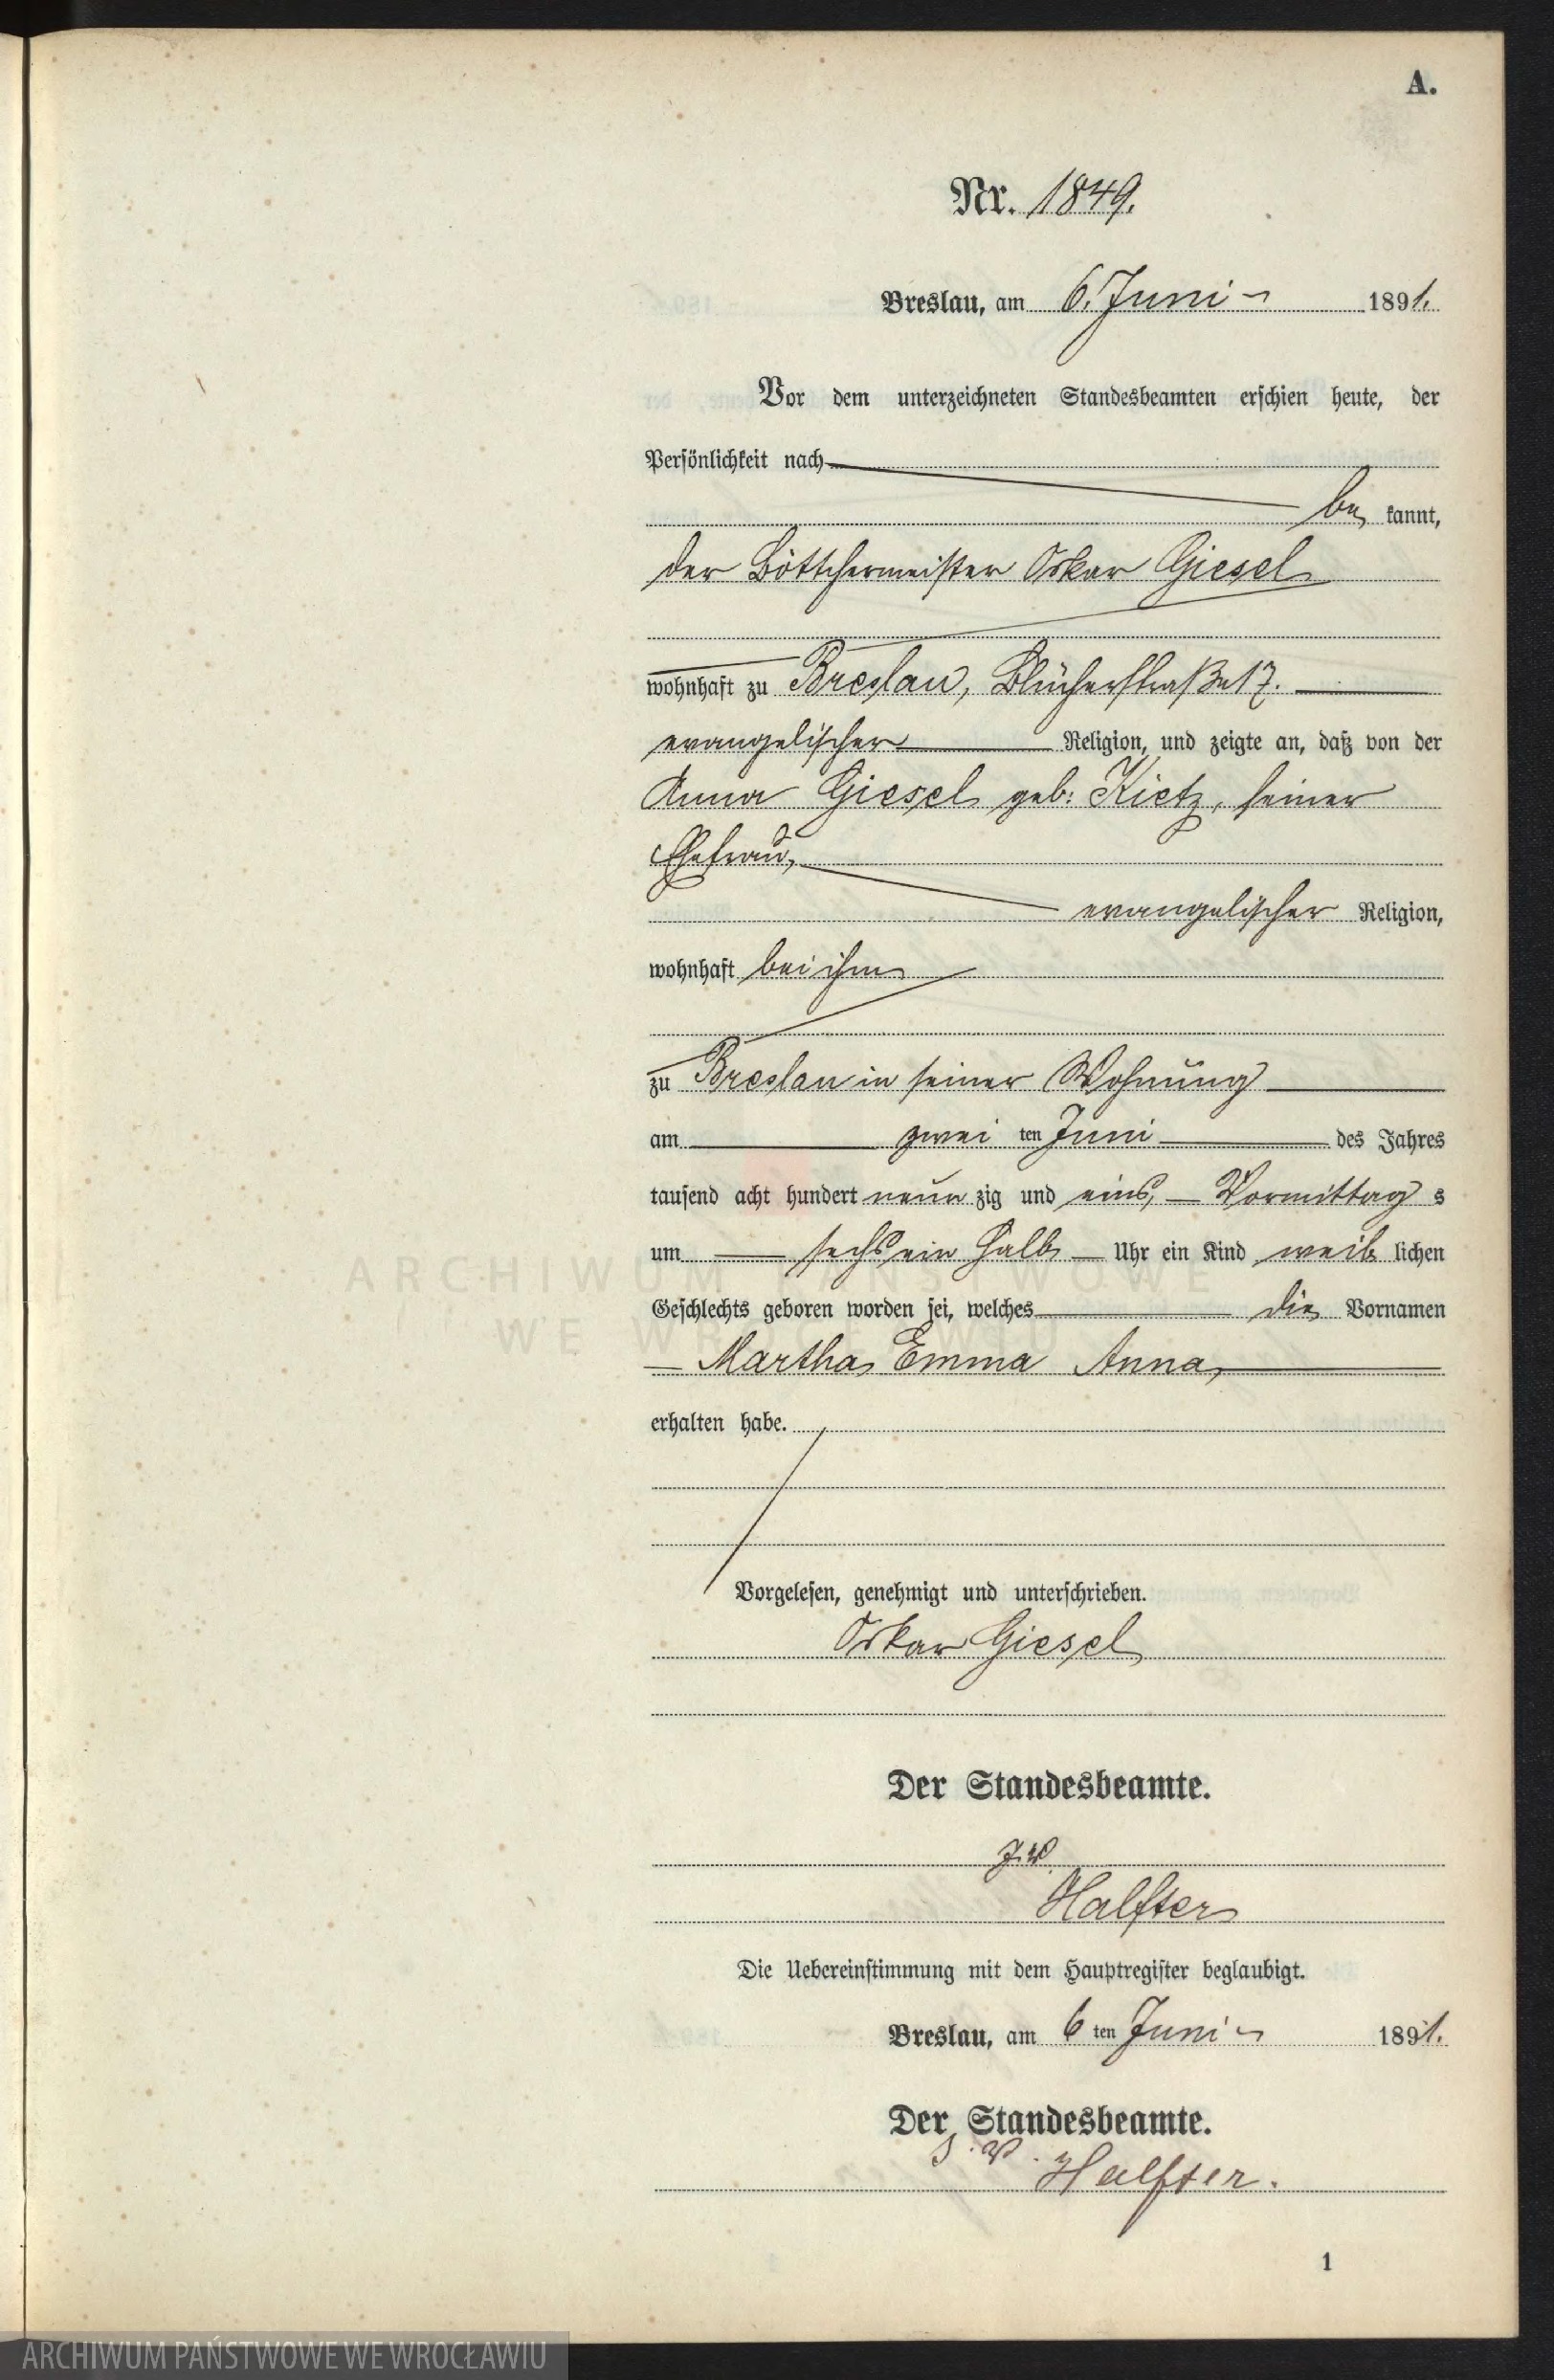 A.
Nr. 1849.
Breslau, am 6. Juni 1891.
Vor dem unterzeichneten Standesbeamten erschien heute, der
Persönlichkeit nach
be kannt,
der Böttchermeister Oskar Giesel
wohnhaft zu Breslau, Blücherstraße 17.
evangelischer Religion, und zeigte an, daß von der
Anna Giesel geb: Kietz, seiner
Ehefrau,
evangelischer Religion,
wohnhaft bei ihm
zu Breslau in seiner Wohnung
am zwei ten Juni des Jahres
tausend acht hundert neun zig und eins, Vormittag s
um sechs ein halb Uhr ein Kind weib lichen
Geschlechts geboren worden sei, welches die Vornamen
Martha Emma Anna,
erhalten habe.
Vorgelesen, genehmigt und unterschrieben.
Oskar Giesel
Der Standesbeamte.
J. V.
Halfter
Die Uebereinstimmung mit dem Hauptregister beglaubigt.
Breslau, am 6 ten Juni 1891.
Der Standesbeamte.
J. V. Halfter.
1
ARCHIWUM PAŃSTWOWE
WE WROCŁAWIU
ARCHIWUM PAŃSTWOWE WE WROCŁAWIU